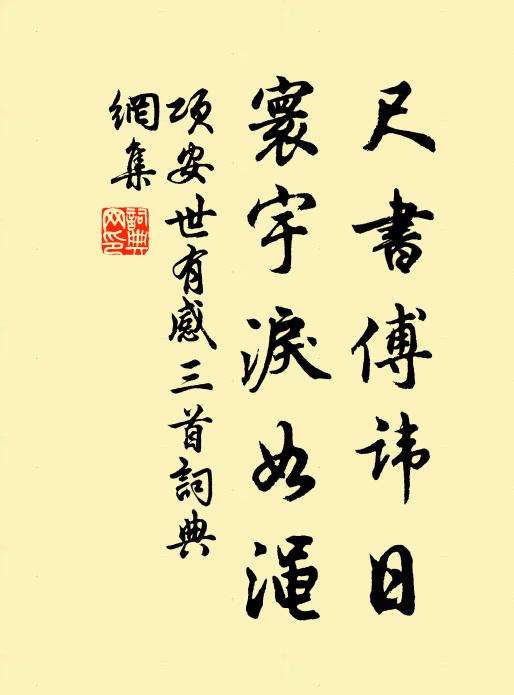 尺書傅諱日
寰宇淚如渑
項安世有感三首詞典
網集
詞典網印